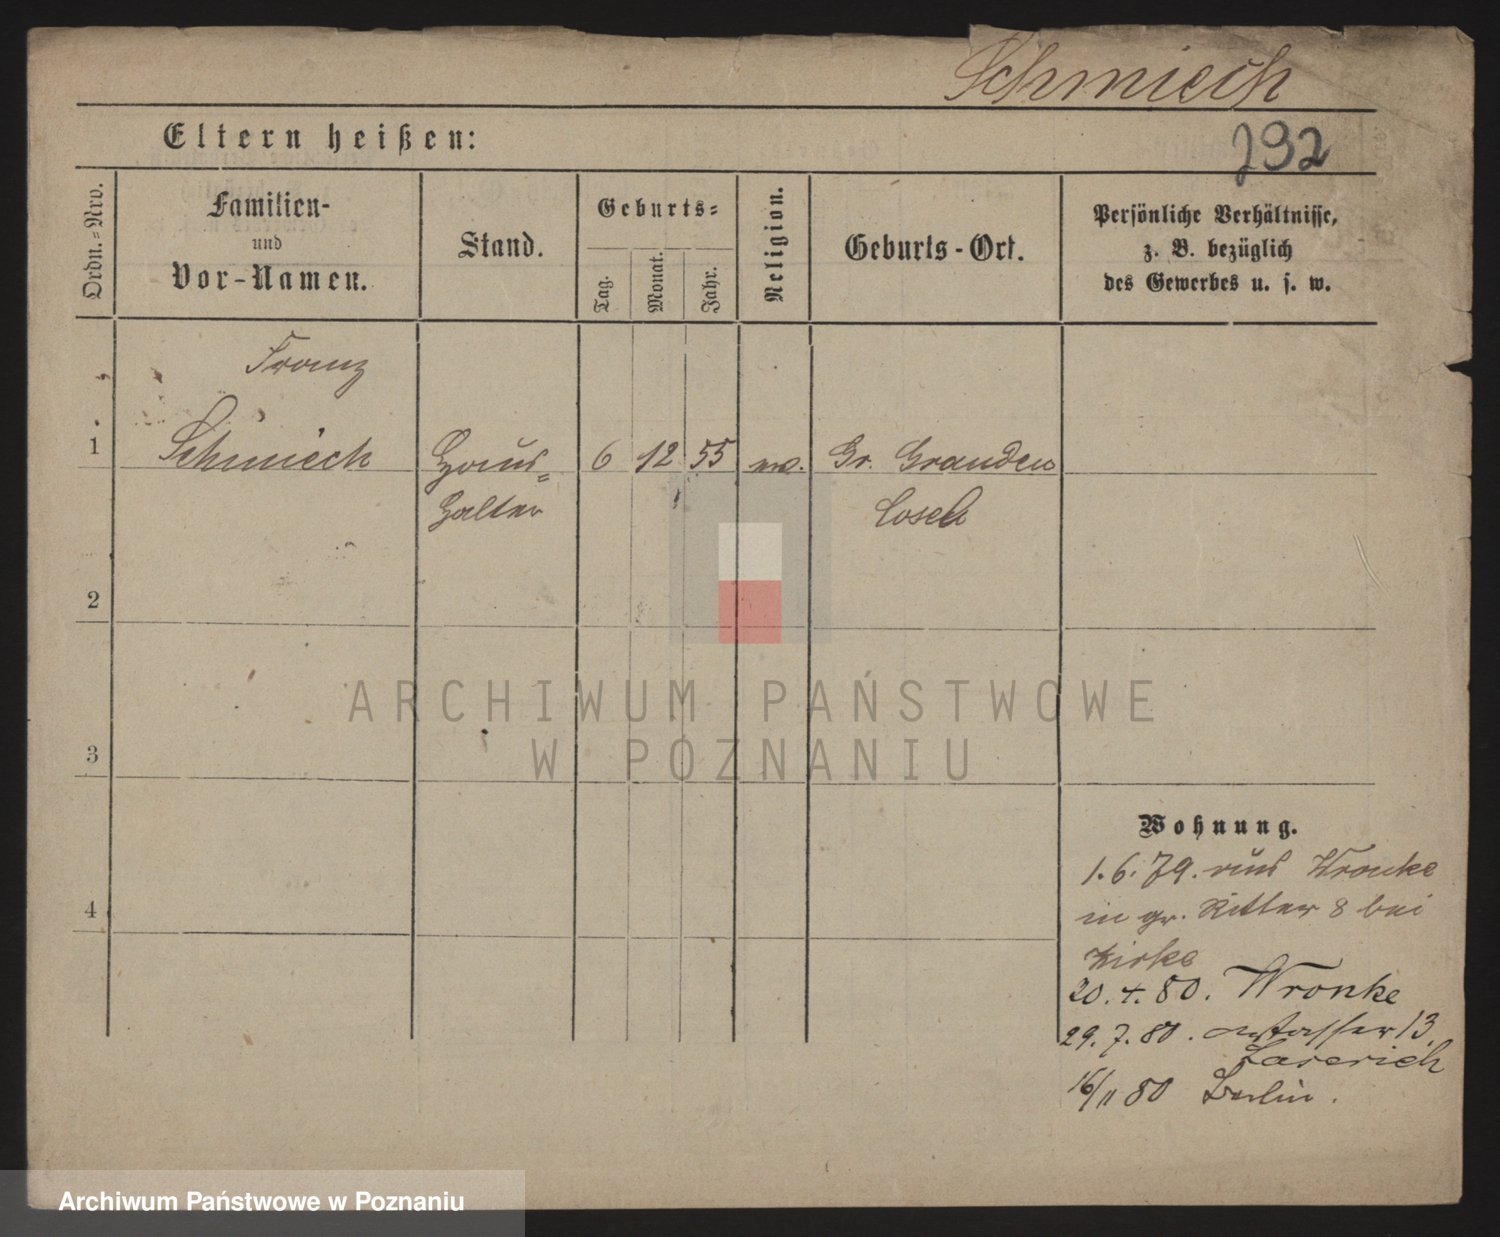 Schmiech
292
Eltern heißen:
Ordn.=Nro.
Familien-
und
Vor-Namen.
Stand.
Geburts=
Tag.
Monat.
Jahr.
Religion.
Geburts-Ort.
Persönliche Verhältnisse,
z. B. bezüglich
des Gewerbes u. s. w.
Franz
1 Schmiech Haus= 6 12 55 Gr. Grauden
halter Cosel
2
3
4
ARCHIWUM PAŃSTWOWE
W POZNANIU
Wohnung.
1. 6. 79. aus Wronke
in gr. Ritter 8 bei
Zirke
20. 4. 80. Wronke
29. 7. 80. 13.
16/11 80 Berlin.
Archiwum Państwowe w Poznaniu